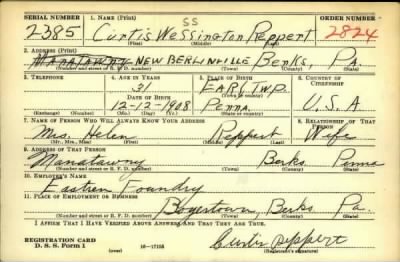 SERIAL NUMBER 1. NAME (Print) ORDER NUMBER
SS
2385 Curtis Wessington Reppert 2824
(First) (Middle) (Last)
2. ADDRESS (Print)
Manatawny NEW BERLINVILLE Berks, Pa.
(Number and street or R. F. D. number) (Town) (County) (State)
3. TELEPHONE 4. AGE IN YEARS 5. PLACE OF BIRTH 6. COUNTRY OF CITIZENSHIP
31 EARL TWP.
DATE OF BIRTH (Town or county)
12-12-1908 Penna. U.S.A
(Exchange) (Number) (Mo.) (Day) (Yr.) (State or country)
7. NAME OF PERSON WHO WILL ALWAYS KNOW YOUR ADDRESS 8. RELATIONSHIP OF THAT PERSON
Mrs. Helen Reppert Wife
(Mr., Mrs., Miss) (First) (Middle) (Last)
9. ADDRESS OF THAT PERSON
Manatawny Berks Penna
(Number and street or R. F. D. number) (Town) (County) (State)
10. EMPLOYER'S NAME
Eastren Foundry
11. PLACE OF EMPLOYMENT OR BUSINESS
Boyertown, Berks, Pa.
(Number and street or R. F. D. number) (Town) (County) (State)
I AFFIRM THAT I HAVE VERIFIED ABOVE ANSWERS AND THAT THEY ARE TRUE.
REGISTRATION CARD
D. S. S. Form 1 16-17105 Curtis Reppert
(over) (Registrant's signature)